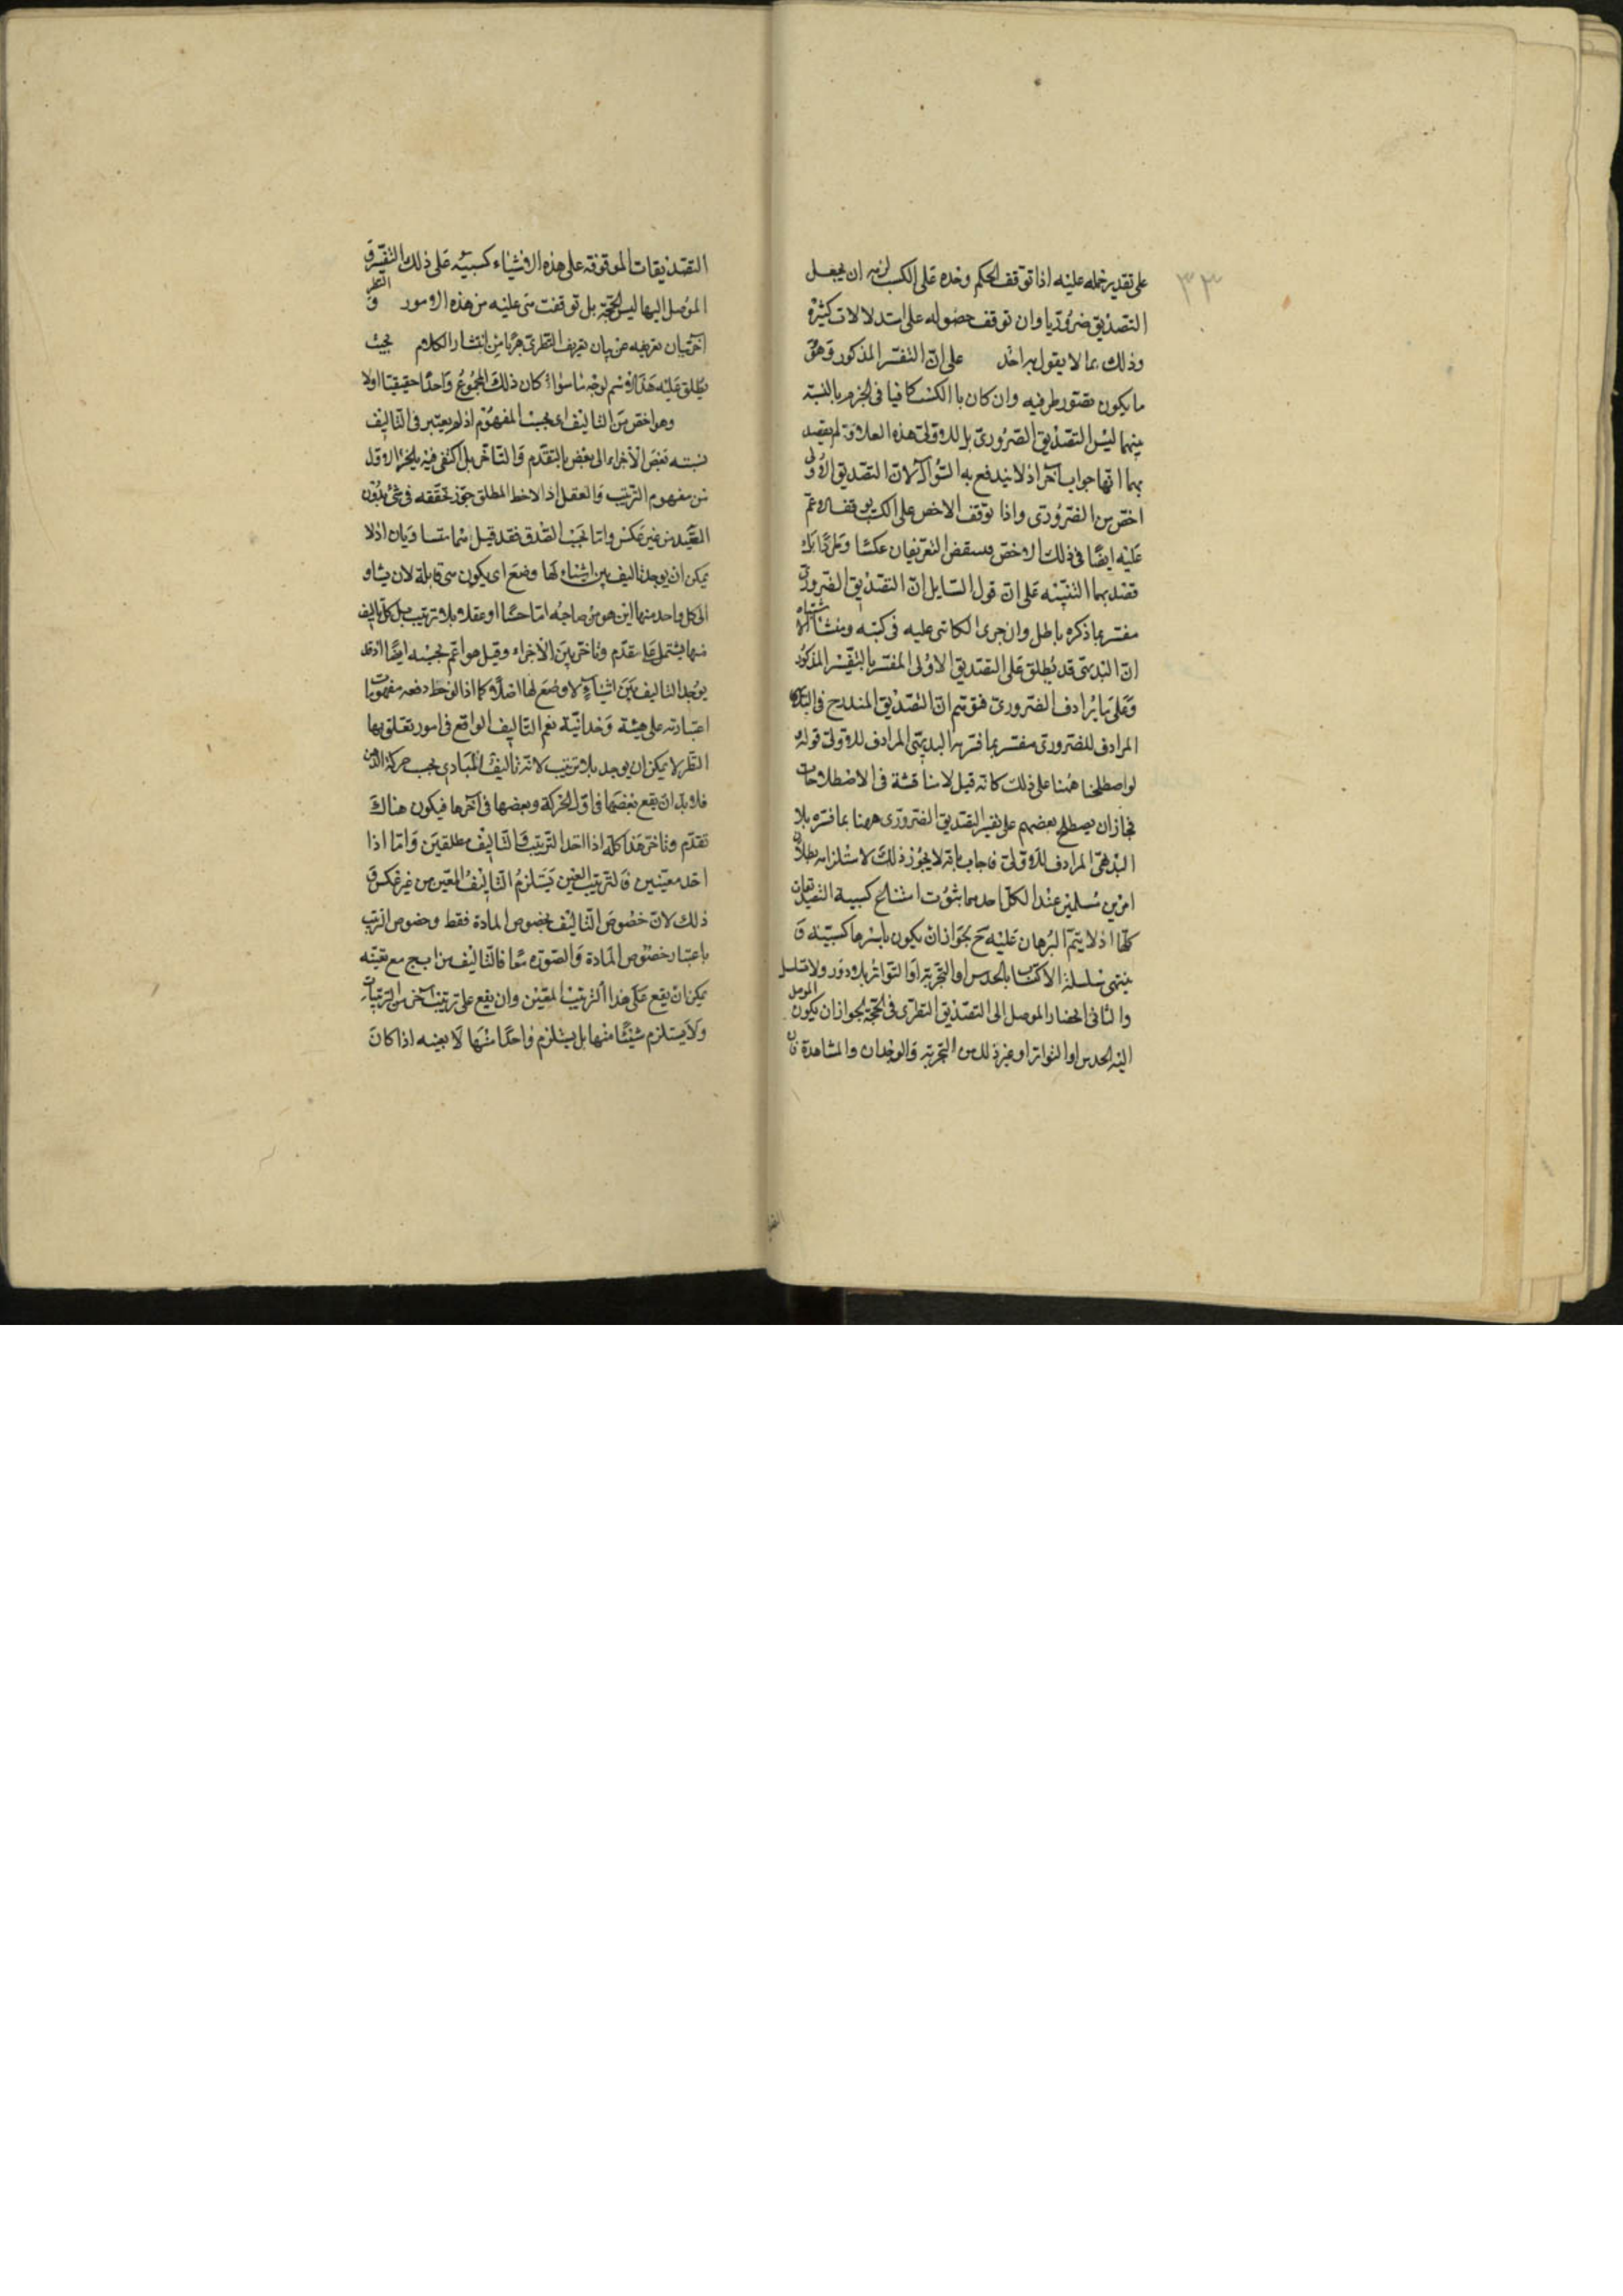 ٣٣
على تقدير حمله عليه اذا توقف الحكم وحده على الكسب لزمه ان يجعل
التصديق ضروريا وان توقف حصوله على استدلالات كثيرة
وذلك مما لا يقول به احد على ان التفسير المذكور وهو
ما يكون تصور طرفيه وان كان بالكسب كافيا فى الجزم بالنسبة
بينهما ليس التصديق الضرورى بل للاولى هذه العلاوة لم يقصد
بها انها جواب آخر اذ لا يندفع به السؤال لان التصديق الاولى
اخص من الضرورى واذا توقف الاخص على الكسب توقف الاعم
عليه ايضا فى ذلك الاخص فينتقض التعريفان عكسا وطردا بل
قصد بها التنبيه على ان قول السايل ان التصديق الضرورى
مفسر بما ذكره باطل وان جرى الكاتبى عليه فى كتبه ومنشا الاشتباه
ان البديهى قد يطلق على التصديق الاولى المفسر بالتفسير المذكور
وعلى ما يرادف الضرورى فتوهم ان التصديق المندرج فى البديهى
المرادف للضرورى مفسر بما فسر به البديهى المرادف للاولى قوله
لو اصطلحنا ههنا على ذلك كانه قيل لا مناقشة فى الاصطلاحات
فجاز ان يصطلح بعضهم على تفسير التصديق الضرورى ههنا بما فسر به
البديهى المرادف للاولى فاجاب بانه لا يجوز ذلك لاستلزامه بطلان
امرين مسلمين عند الكل احدهما ثبوت امتناع كسبية التصديقات
كلها اذ لا يتم البرهان عليه ح لجواز ان يكون باسرها كسبية و
ينتهى سلسلة الاكتساب بالحدس او التجربة او التواتر بلا دور ولا تسلسل
والثانى انحصار الموصل الى التصديق النظرى فى الحجة لجواز ان يكون الموصل
اليه الحدس او التواتر او غير ذلك من التجربة والوجدان والمشاهدة فان
التصديقات الموقوفة على هذه الاشياء كسبية على ذلك التفسير و
الموصل اليها ليس الحجة بل توقفت هى عليه من هذه الامور و النظر
آخر بيان تعريفه عن بيان تعريف النظرى هربا من انتشار الكلام بحيث
يطلق عليه هذا الاسم لوجه ما سواء كان ذلك المجموع واحدا حقيقيا اولا
وهو اخص من التاليف اى بحسب المفهوم اذ لم يعتبر فى التاليف
نسبة بعض الاجزاء الى بعض بالتقدم والتاخر بل اكتفى فيه بالجزء الاول
من مفهوم الترتيب والعقل اذا لاحظ المطلق جوز تحققه فى شئ بدون
المقيد من غير عكس واما بحسب الصدق فقد قيل هما متساويان اذ لا
يمكن ان يوجد تاليف بين اشياء لها وضع اى يكون هى قابلة لان يشار
الى كل واحد منها اين هو من صاحبه اما حسا او عقلا بلا ترتيب بل كل تاليف
منها يشتمل على تقدم وتاخر بين الاجزاء وقيل هو اعم بحسبه ايضا اذ قد
يوجد التاليف بين اشياء لا وضع لها اصلا كما اذا لوحظ دفعة مفهومات
اعتبارية على هيئة وحدانية نعم التاليف الواقع فى امور تعلق بها
النظر لا يمكن ان يوجد بلا ترتيب لانه تاليف المبادى بحسب حركة الذهن
فلا بد ان يقع بعضها فى اول الحركة وبعضها فى آخرها فيكون هناك
تقدم وتاخر هذا كله اذا اخذ الترتيب والتاليف مطلقين واما اذا
اخذ معينين فالترتيب المعين يستلزم التاليف المعين من غير عكس و
ذلك لان خصوص التاليف بخصوص المادة فقط وخصوص الترتيب
باعتبار خصوص المادة والصورة معا فالتاليف من ا ب ج مع تعينه
يمكن ان يقع على هذا الترتيب المعين وان يقع على ترتيب آخر من الترتيبات
ولا يستلزم شيئا منها بل يستلزم واحدا منها لا بعينه اذا كان